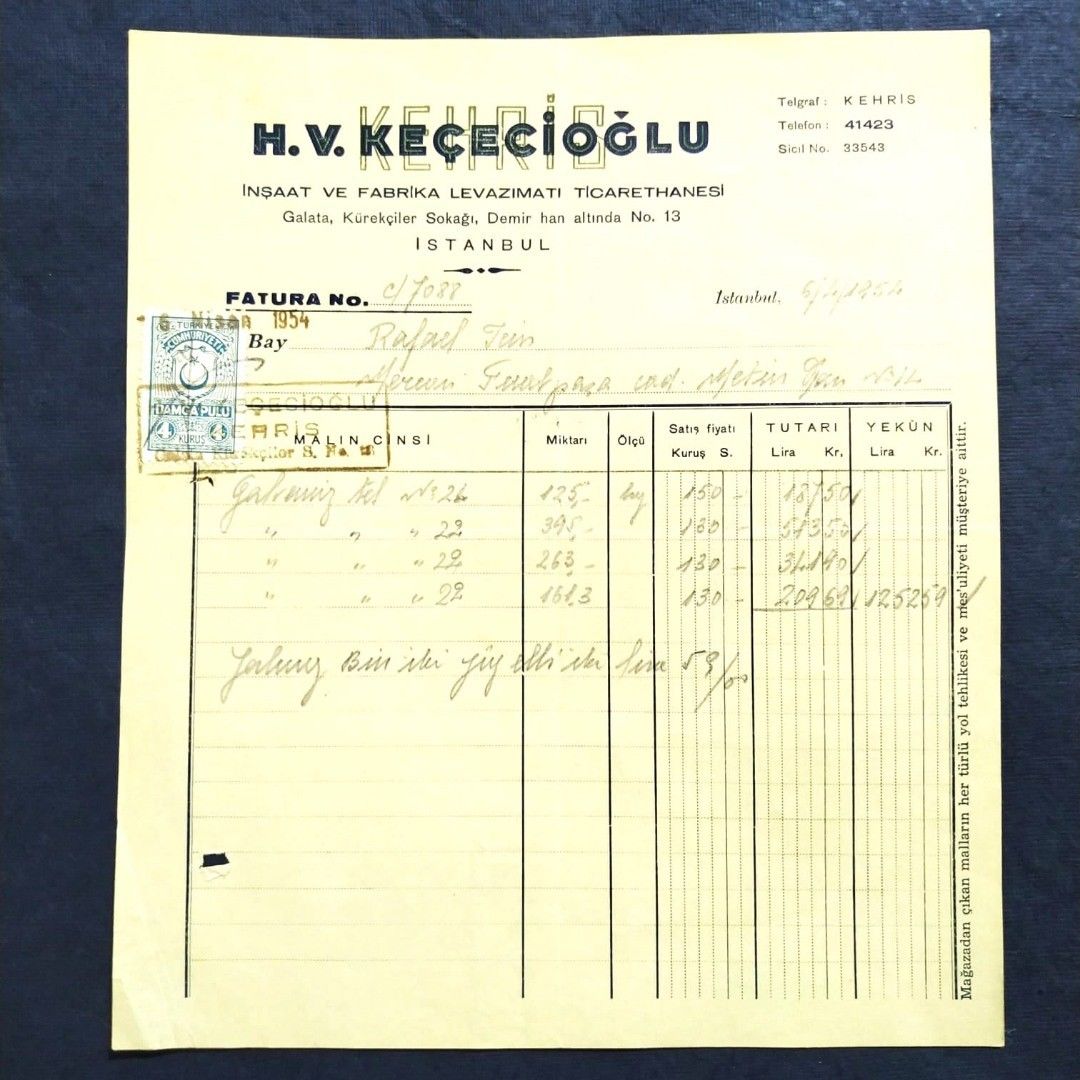 KEHRİS
H.V. KEÇECİOĞLU
İNŞAAT VE FABRİKA LEVAZIMATI TİCARETHANESİ
Galata, Kürekçiler Sokağı, Demir han altında No. 13
İSTANBUL
Telgraf: KEHRİS
Telefon: 41423
Sicil No. 33543
FATURA No. c/7088
Istanbul, 6/4/1954
6 Nisan 1954
TÜRKİYE CUMHURİYETİ
DAMGA PULU
4 KURUŞ 4
KEÇECİOĞLU
KEHRİS
S. No. 13
Bay Rafael
Mercan Fuatpaşa cad. Metin Han
MALIN CİNSİ Miktarı Ölçü Satış fiyatı Kuruş S. TUTARI Lira Kr. YEKÜN Lira Kr.
Galvaniz tel No 24 125,- kg 150 - 187 50
" " " 22 395,- 130 - 513 50
" " " 22 263,- 130 - 341 90
" " " 22 161,3 130 - 209 69 1252 59
Yalnız Bin iki yüz elli iki lira 59/00
Mağazadan çıkan malların her türlü yol tehlikesi ve mes'uliyeti müşteriye aittir.